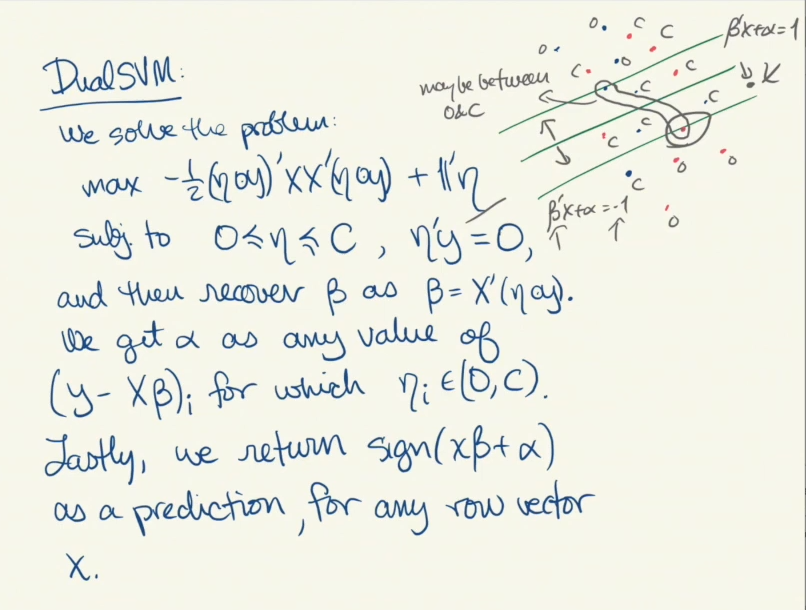 DualSVM:
We solve the problem:
max -1/2(η⊙y)'XX'(η⊙y) + 𝟙'η
subj. to 0≤η≤C, η'y=0,
and then recover β as β=X'(η⊙y).
We get α as any value of
(y-Xβ)ᵢ for which ηᵢ∈(0,C).
Lastly, we return sign(xβ+α)
as a prediction, for any row vector
x.
β'x+α=1
maybe between
0&C
β'x+α=-1
0
C
C
0
0
C
C
C
C
C
C
C
0
0
0